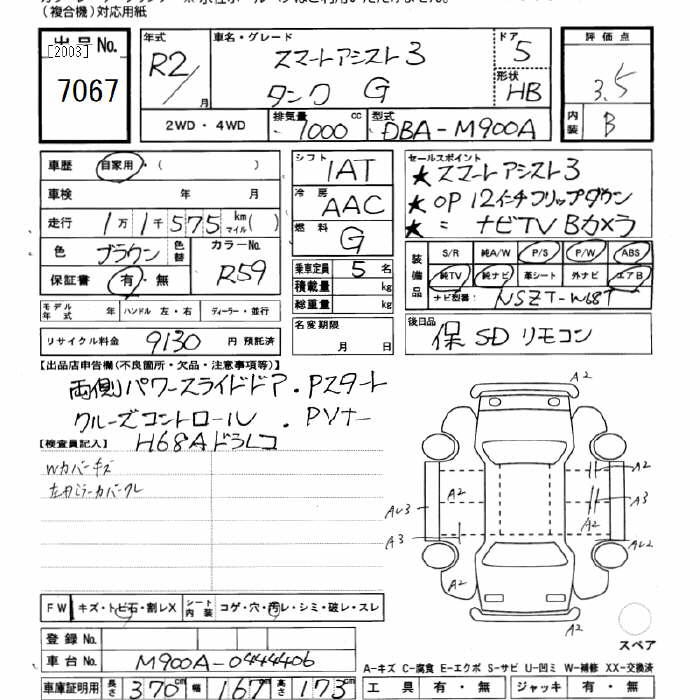 （複合機）対応用紙
出品 No.
[2003]
7067
年式
R2/
月
車名・グレード
スマートアシスト3
タンク G
ドア
5
形状
HB
評価点
3.5
内装
B
2WD・4WD
排気量
1000 cc
型式
DBA-M900A
車歴 自家用・( )
車検 年 月
走行 1万1千575 km マイル ( )
色 ブラウン
色替
カラーNo.
R59
保証書 有・無
シフト
IAT
冷房
AAC
燃料
G
乗車定員 5 名
積載量 kg
総重量 kg
セールスポイント
★スマートアシスト3
★OP 12インチフリップダウン
★ 〃 ナビTV Bカメラ
装備品
S/R 純A/W P/S P/W ABS
純TV 純ナビ 革シート 外ナビ エアB
ナビ型番: NSZT-W68T
モデル年式 年
ハンドル 左・右
ディーラー・並行
リサイクル料金 9130 円 預託済
名変期限
月 日
後日品
保 SD リモコン
【出品店申告欄(不良箇所・欠品・注意事項等)】
両側パワースライドドア・Pスタート
クルーズコントロール ・PVナー
【検査員記入】
H68Aドラレコ
Wカバーキズ
左右ミラーカバークレ
A2
A2
A2
A3
A2
AU3
A2
A3
AU2
A2
A2
A2
スペア
FW
キズ・トビ石・割レX
シート内装
コゲ・穴・汚レ・シミ・破レ・スレ
登録 No.
車台 No.
M900A-0444406
車庫証明用
長さ 370 cm 幅 167 cm 高さ 173 cm
A-キズ C-腐食 E-エクボ S-サビ U-凹ミ W-補修 XX-交換済
工具 有・無 ジャッキ 有・無